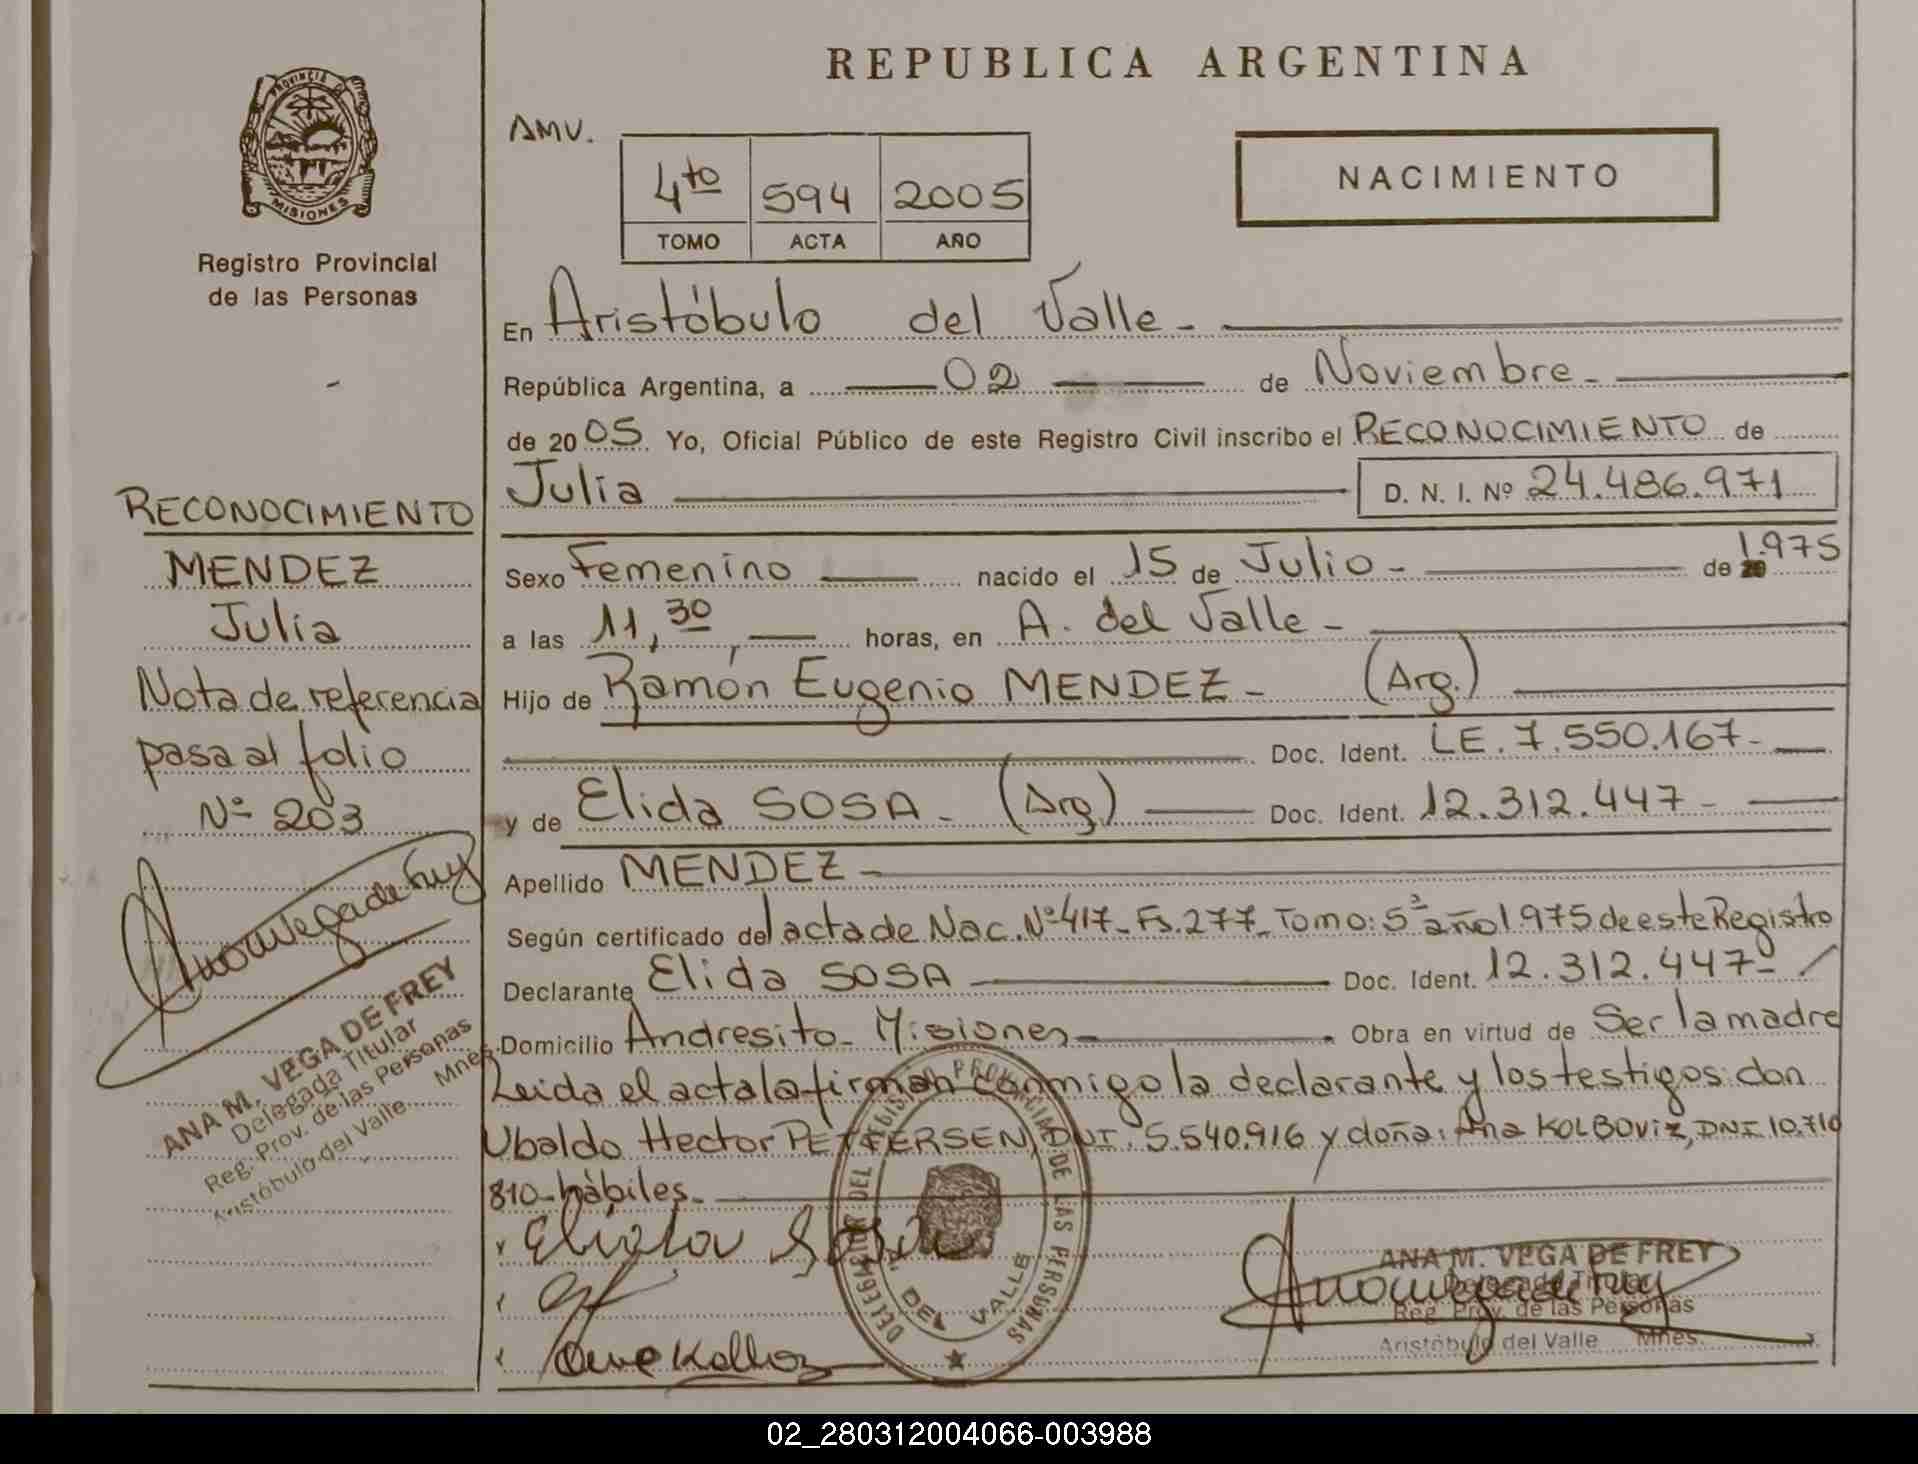 REPUBLICA ARGENTINA
PROVINCIA
MISIONES
Registro Provincial
de las Personas
AMV.
4to 594 2005
TOMO ACTA AÑO
NACIMIENTO
En Aristóbulo del Valle-
República Argentina, a 02 de Noviembre-
de 2005. Yo, Oficial Público de este Registro Civil inscribo el RECONOCIMIENTO de
Julia D. N. I. Nº 24.486.971
Sexo Femenino nacido el 15 de Julio- de 20 1.975
a las 11,30, horas, en A. del Valle-
Hijo de Ramón Eugenio MENDEZ- (Arg.)
Doc. Ident. LE. 7.550.167-
y de Elida SOSA- (Arg) Doc. Ident. 12.312.447-
Apellido MENDEZ-
Según certificado del acta de Nac. Nº 417- Fs. 277- Tomo: 5º año 1.975 de este Registro
Declarante Elida SOSA Doc. Ident. 12.312.447-
Domicilio Andresito- Misiones- Obra en virtud de Ser la madre
Leida el acta la firman conmigo la declarante y los testigos: don
Ubaldo Hector PETTERSEN, DNI. 5.540.916 y doña: Ana KOLBOViz, DNI 10.710
810- hábiles-
Elida Sosa
ANA M. VEGA DE FREY
Delegada Titular
Reg. Prov. de las Personas
Aristóbulo del Valle Mnes.
DEL REGISTRO PROVINCIAL DE LAS PERSONAS
DEL VALLE
RECONOCIMIENTO
MENDEZ
Julia
Nota de referencia
pasa al folio
Nº 203
Ana M Vega de Frey
ANA M. VEGA DE FREY
Delegada Titular
Reg. Prov. de las Personas
Aristóbulo del Valle Mnes.
02_280312004066-003988